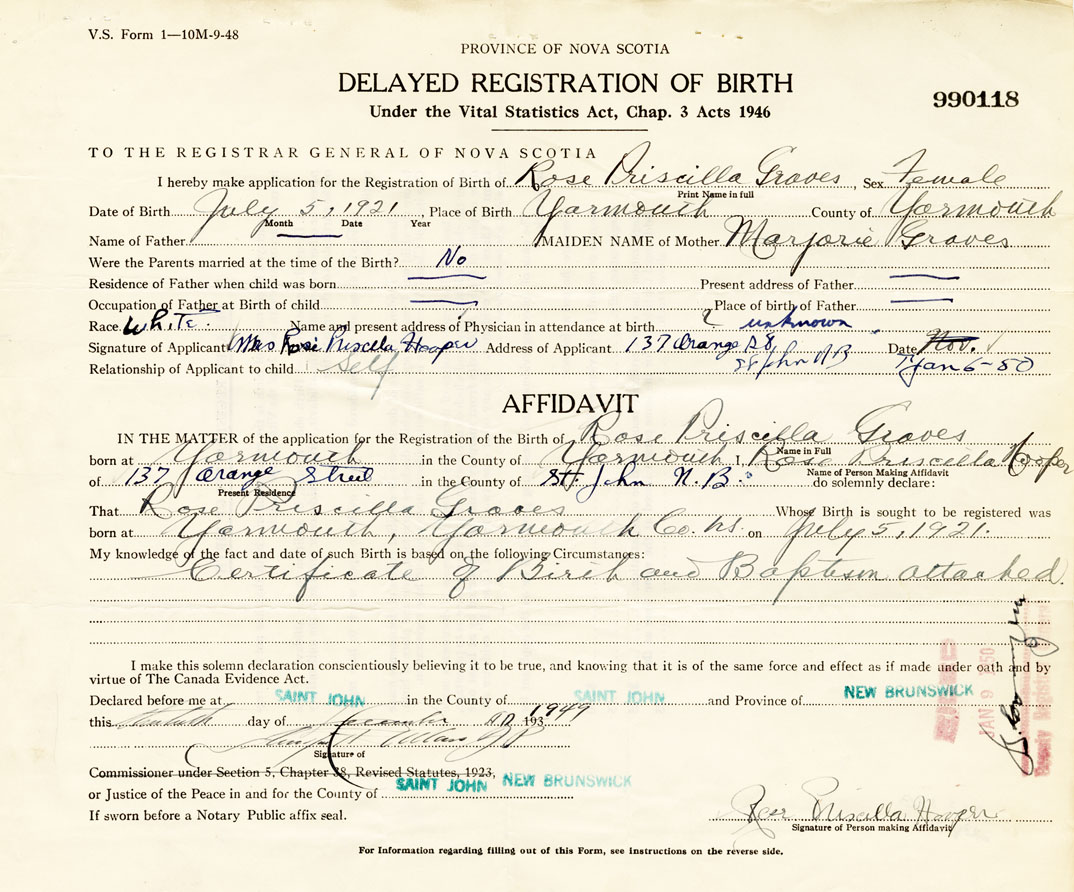 V.S. Form 1—10M-9-48
PROVINCE OF NOVA SCOTIA
DELAYED REGISTRATION OF BIRTH
990118
Under the Vital Statistics Act, Chap. 3 Acts 1946
TO THE REGISTRAR GENERAL OF NOVA SCOTIA
I hereby make application for the Registration of Birth of Rose Priscilla Graves, Sex Female
Print Name in full
Date of Birth July 5, 1921, Place of Birth Yarmouth County of Yarmouth
Month Date Year
Name of Father MAIDEN NAME of Mother Marjorie Graves
Were the Parents married at the time of the Birth? No
Residence of Father when child was born Present address of Father
Occupation of Father at Birth of child Place of birth of Father
Race White. Name and present address of Physician in attendance at birth unknown
Signature of Applicant Mrs Rose Priscilla Hooper Address of Applicant 137 Orange St Date Nov.
St John NB Jan 6-50
Relationship of Applicant to child Self
AFFIDAVIT
IN THE MATTER of the application for the Registration of the Birth of Rose Priscilla Graves
Name in Full
born at Yarmouth in the County of Yarmouth I, Rose Priscilla Hooper
Name of Person Making Affidavit
of 137 Orange Street in the County of St. John N.B. do solemnly declare:
Present Residence
That Rose Priscilla Graves Whose Birth is sought to be registered was
born at Yarmouth, Yarmouth Co. N.S. on July 5, 1921.
My knowledge of the fact and date of such Birth is based on the following Circumstances:
Certificate of Birth and Baptism attached.
I make this solemn declaration conscientiously believing it to be true, and knowing that it is of the same force and effect as if made under oath and by
virtue of The Canada Evidence Act.
Declared before me at SAINT JOHN in the County of SAINT JOHN and Province of NEW BRUNSWICK
this day of December A.D. 193 1949
Signature of
Commissioner under Section 5, Chapter 38, Revised Statutes, 1923,
or Justice of the Peace in and for the County of SAINT JOHN NEW BRUNSWICK
If sworn before a Notary Public affix seal.
Rose Priscilla Hooper
Signature of Person making Affidavit
For Information regarding filling out of this Form, see instructions on the reverse side.
JAN 9 1950